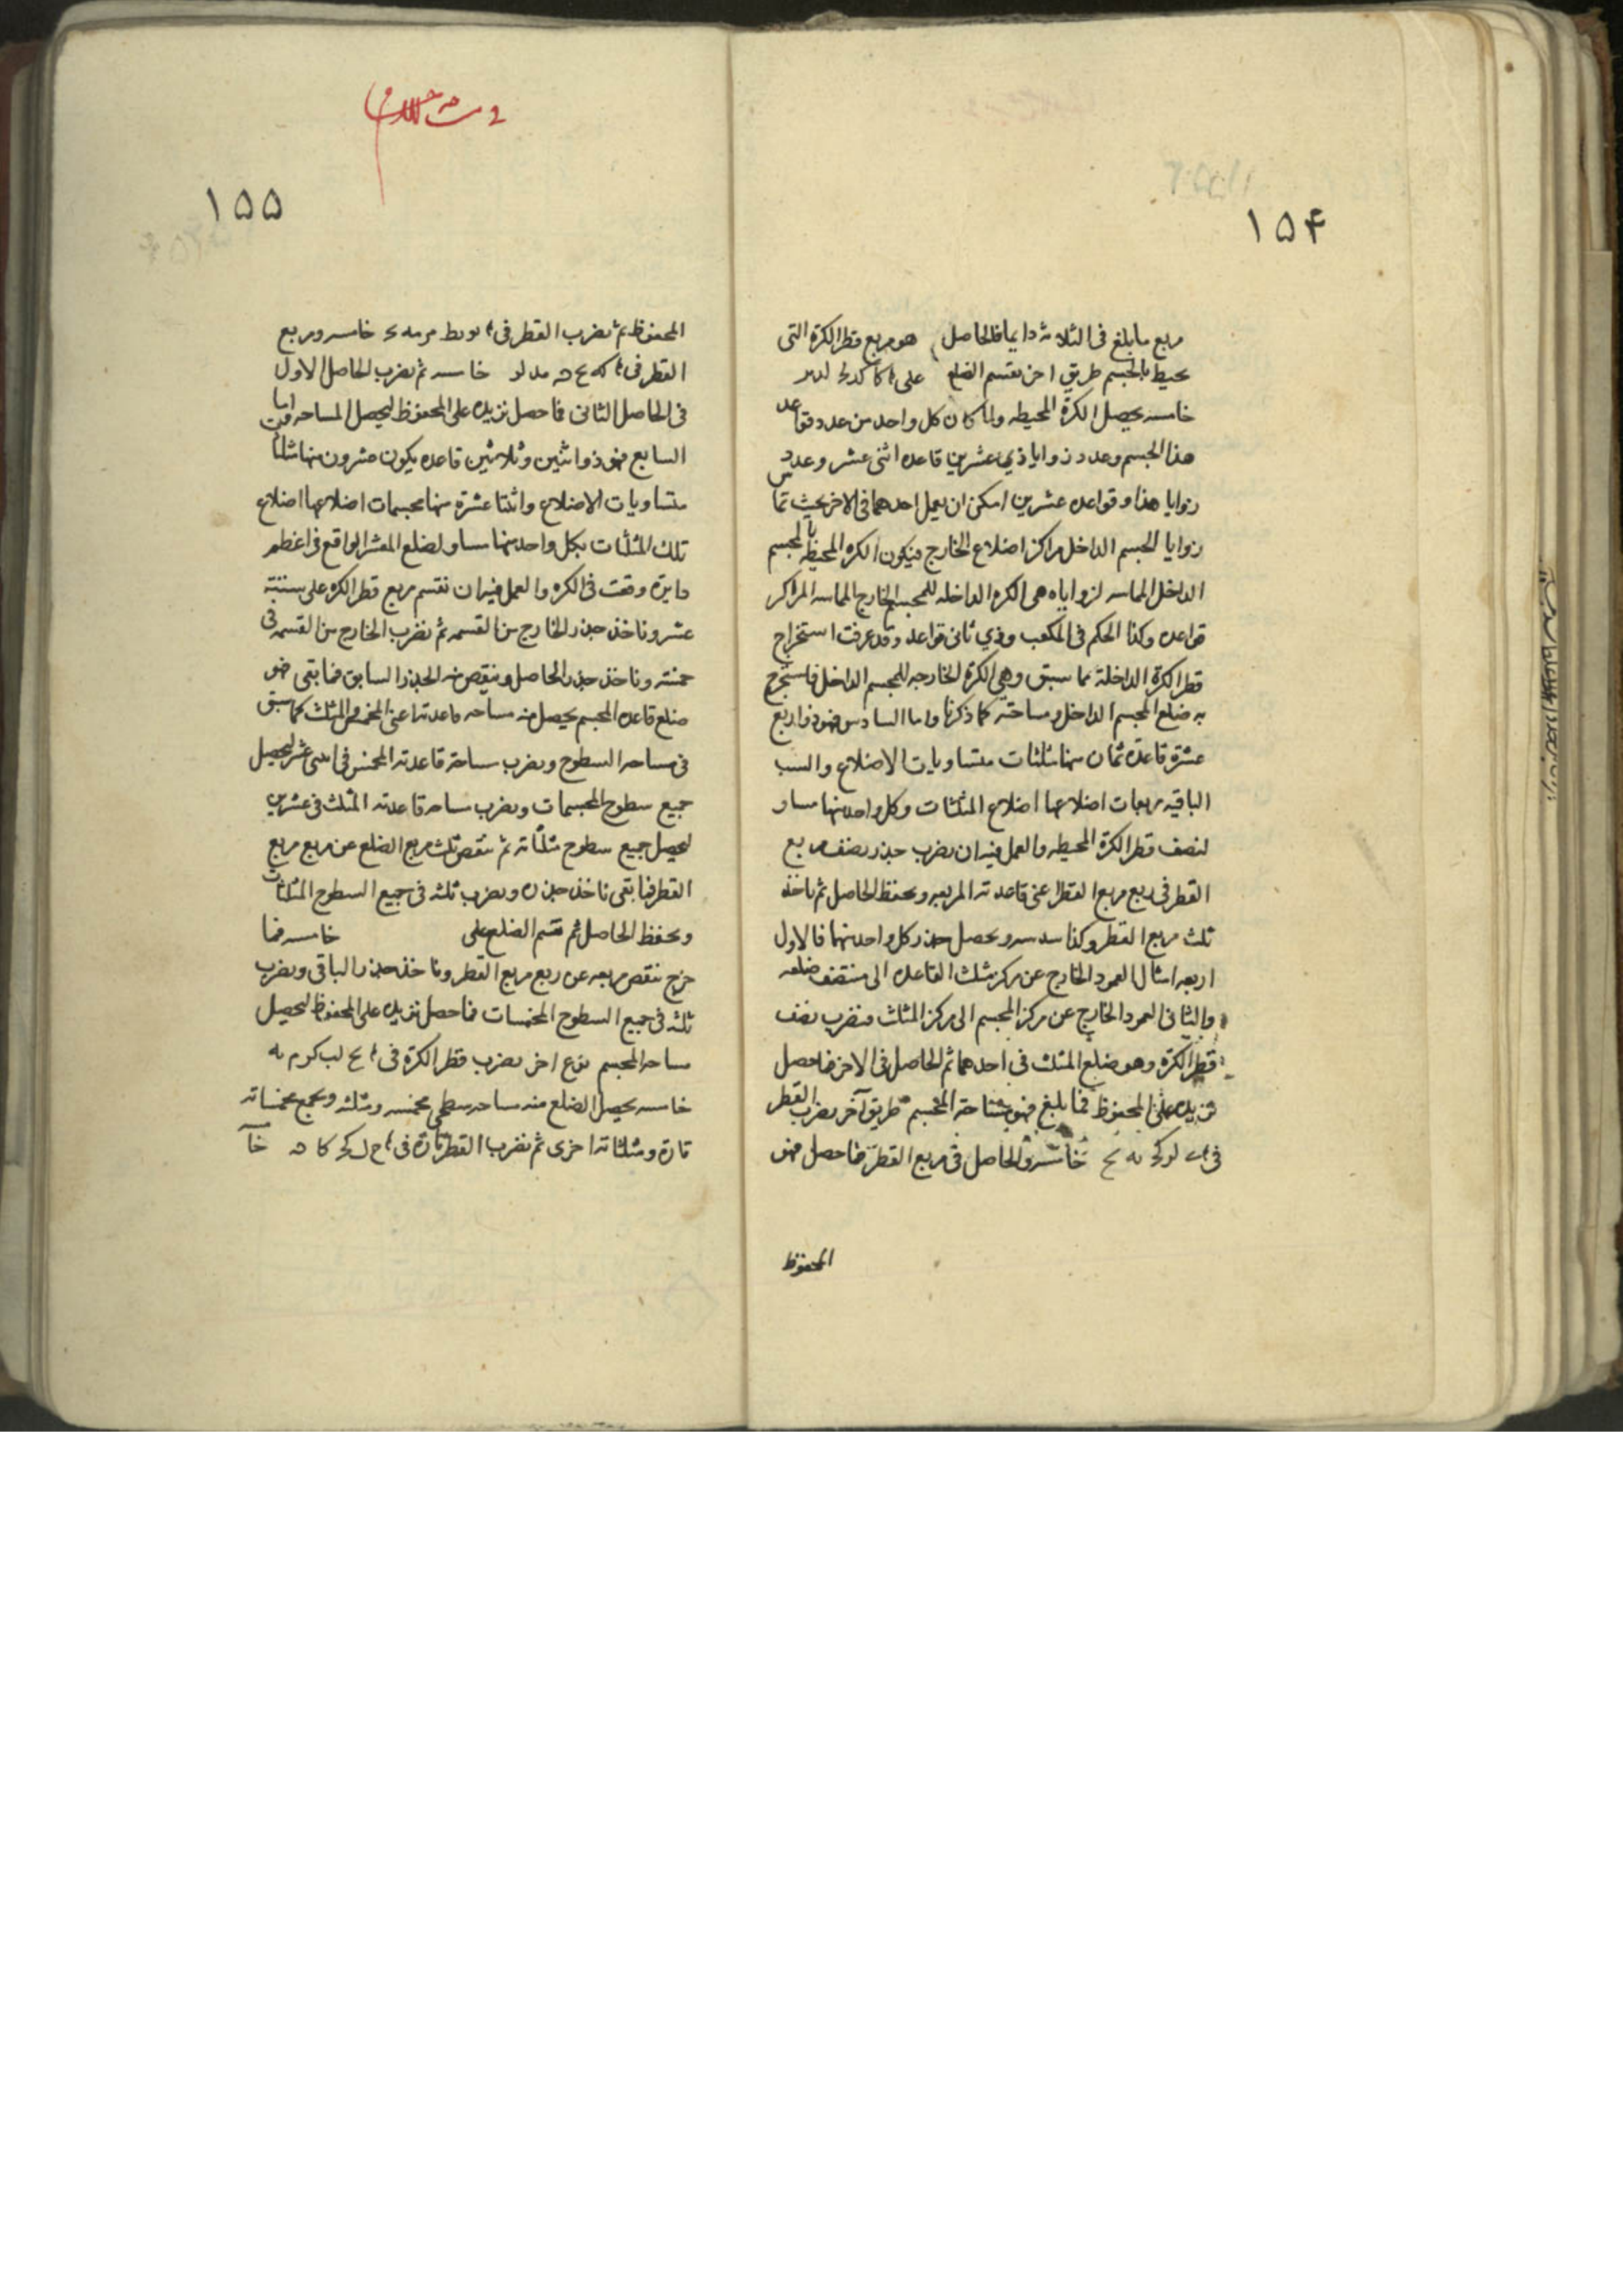 ١٥۴
مربع ما بلغ فى الثلاثة دايما فالحاصل هو مربع قطر الكرة التى
يحيط بالمجسم طريق اخر نقسم الضلع على
خامسه يحصل الكرة المحيطه ولما كان كل واحد من عدد قواعد
هذا المجسم وعدد زوايا ذي عشرين قاعده اثنى عشر وعدد
زوايا هذا وقواعده عشرين امكن ان يعمل احدهما فى الاخر بحيث تماس
زوايا المجسم الداخل مراكز اضلاع الخارج فيكون الكره المحيطه بالمجسم
الداخل المماسه لزواياه هى الكره الداخله للمجسم الخارج المماسه المراكز
قواعده وكذا الحكم فى المكعب وذي ثمانى قواعد وقد عرفت استخراج
قطر الكرة الداخلة مما سبق وهي الكرة الخارجه للمجسم الداخل فاستخرج
به ضلع المجسم الداخل ومساحته كما ذكرنا واما السادس فهو ذو اربع
عشرة قاعدة ثمان منها مثلثات متساويات الاضلاع والست
الباقيه مربعات اضلاعها اضلاع المثلثات وكل واحد منها مساو
لنصف قطر الكرة المحيطه والعمل فيه ان نضرب جذر نصف مربع
القطر فى ربع مربع القطر اعنى قاعدته المربعه ونحفظ الحاصل ثم ناخذ
ثلث مربع القطر وكذا سدسه ونحصل جذر كل واحد منهما فالاول
اربعه امثال العمود الخارج عن مركز مثلث القاعده الى منتصف ضلعه
والثانى العمود الخارج عن مركز المجسم الى مركز المثلث فنضرب نصف
قطر الكرة وهو ضلع المثلث فى احدهما ثم الحاصل فى الاخر فما حصل
نزيده على المحفوظ فما بلغ فهو مساحة المجسم طريق آخر نضرب القطر
فى خامسه والحاصل فى مربع القطر فما حصل فهو
المحفوظ
١٥٥
المحفوظ ثم نضرب القطر فى خامسه ومربع
القطر فى خامسه ثم نضرب الحاصل الاول
فى الحاصل الثانى فما حصل نزيده على المحفوظ ليحصل المساحه واما
السابع فهو ذو اثنين وثلاثين قاعده يكون عشرون منها مثلثات
متساويات الاضلاع واثنتا عشرة منها مخمسات اضلاعها اضلاع
تلك المثلثات بكل واحد منها مساو لضلع المعشر الواقع فى اعظم
دايرة وقعت فى الكره والعمل فيه ان نقسم مربع قطر الكره على ستة
عشر وناخذ جذر الخارج من القسمه ثم نضرب الخارج من القسمه فى
خمسة وناخذ جذر الحاصل وننقص منه الجذر السابق فما بقى فهو
ضلع قاعده المجسم يحصل منه مساحه قاعدته اعنى المخمس والمثلث كما سبق
فى مساحه السطوح ونضرب مساحة قاعدته المخمس فى اثنى عشر ليحصل
جميع سطوح المخمسات ونضرب مساحه قاعدته المثلث فى عشرين
ليحصل جميع سطوح مثلثاته ثم ننقص ثلث مربع الضلع عن ربع مربع
القطر فما بقى ناخذ جذره ونضرب ثلثه فى جميع السطوح المثلثات
ونحفظ الحاصل ثم نقسم الضلع على خامسه فما
خرج ننقص مربعه عن ربع مربع القطر وناخذ جذر الباقى ونضرب
ثلثه فى جميع السطوح المخمسات فما حصل نزيده على المحفوظ ليحصل
مساحه المجسم نوع اخر نضرب قطر الكرة فى
خامسه يحصل الضلع منه مساحه سطحى مخمسه ومثلثه ونجمع مخمساته
تارة ومثلثاته اخرى ثم نضرب القطر تارة فى